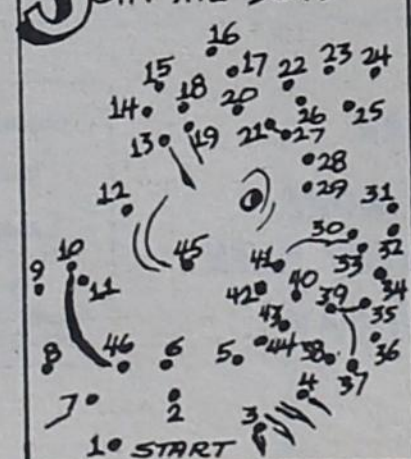 16
17 22 23 24
15 18 20
14 26 25
13 19 21 27
28
29
12 31
30
10 45 41 32
9 33
11 42 40 39 34
43 35
8 46 6 5 44 38 36
4 37
7 2
3
1 START